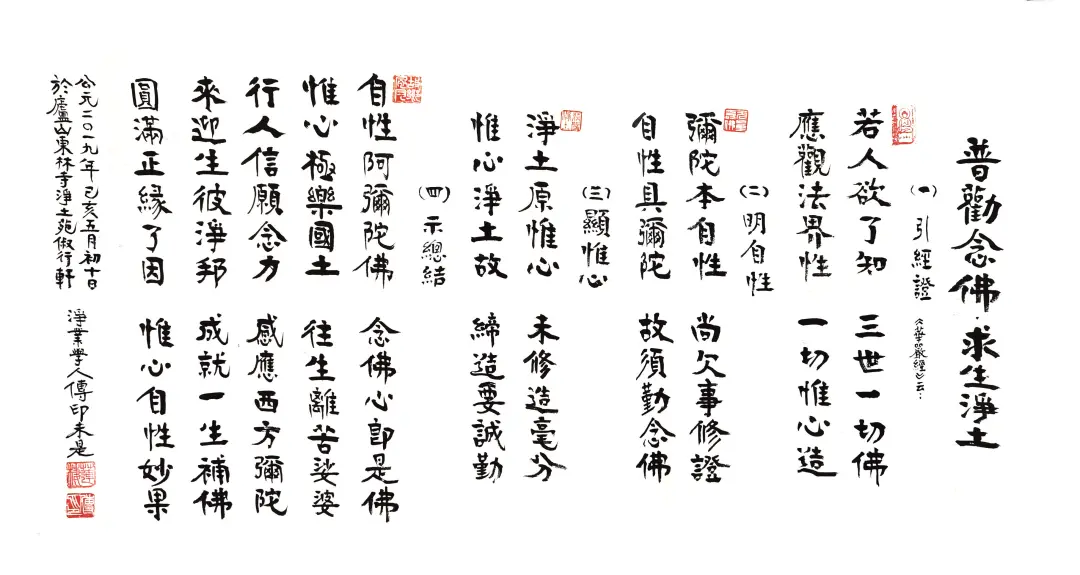 普勸念佛·求生淨土
(一)引經證《華嚴經》云:
若人欲了知 三世一切佛
應觀法界性 一切惟心造
(二)明自性
彌陀本自性 尚欠事修證
自性具彌陀 故須勤念佛
(三)顯惟心
淨土原惟心 未修造毫分
惟心淨土故 締造要誠勤
(四)示總結
自性阿彌陀佛 念佛心即是佛
惟心極樂國土 往生離苦娑婆
行人信願念力 感應西方彌陀
來迎生彼淨邦 成就一生補佛
圓滿正緣了因 惟心自性妙果
公元二〇一九年己亥五月初十日
於廬山東林寺淨土苑俶行軒
淨業學人傳印未是